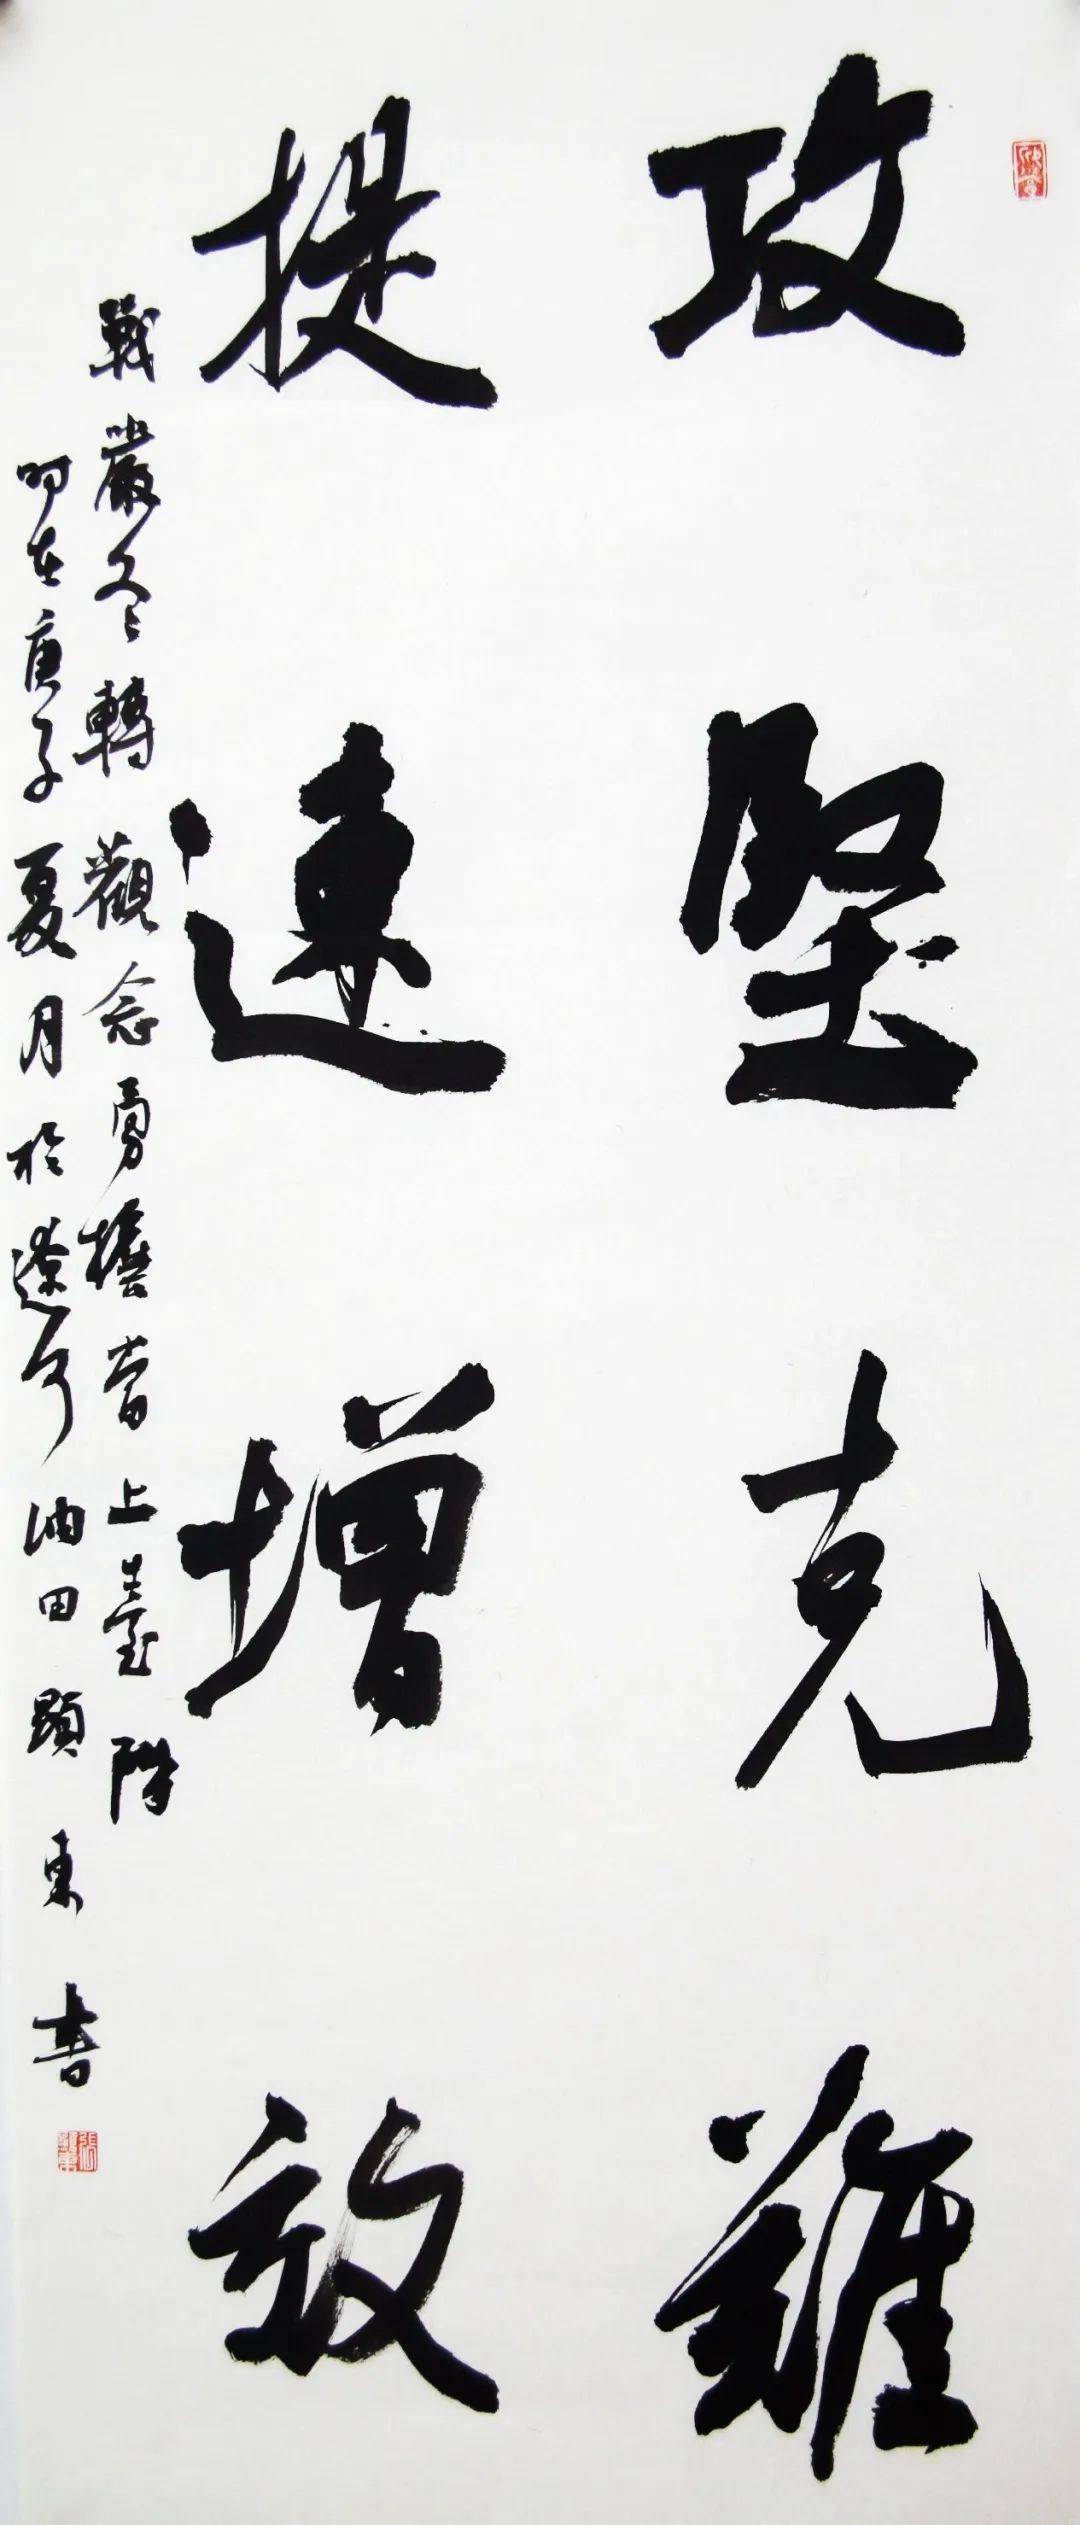 攻堅克難
提速增效
戰嚴冬轉觀念勇擔當上臺階
时在庚子夏月於遼河油田顯東書